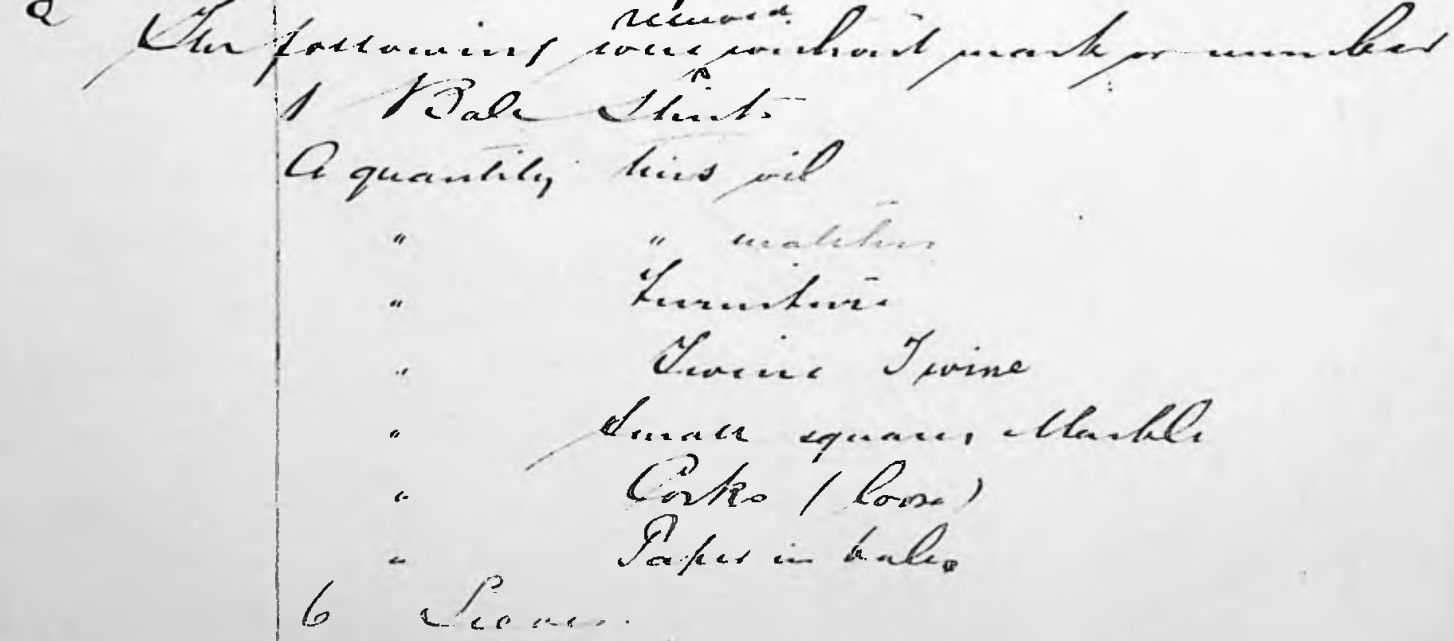 received
The following were without mark or number
1 Bale Shirts
A quantity tins oil
" " matches
" Furniture
" Twine Twine
" Small squares Marble
" Corks (loose)
" Paper in bales
6